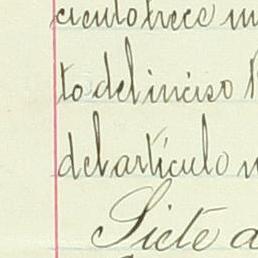 ciento trece
to del inciso
del artículo
Siete